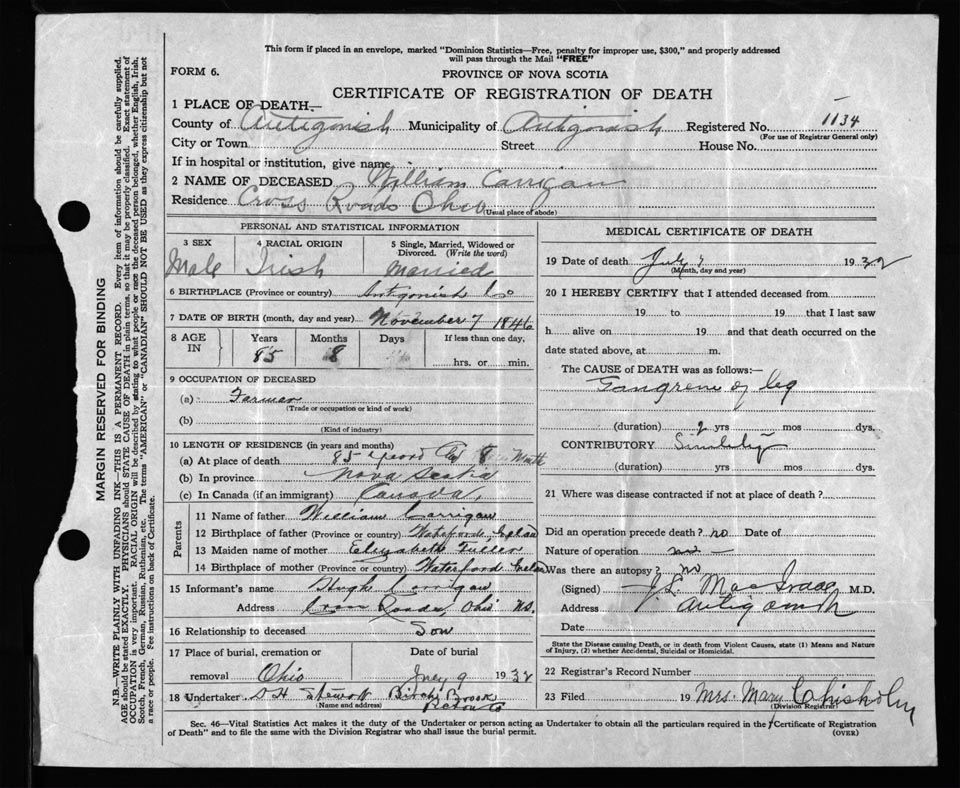 This form if placed in an envelope, marked "Dominion Statistics—Free, penalty for improper use, $300," and properly addressed
will pass through the Mail "FREE"
FORM 6.
PROVINCE OF NOVA SCOTIA
CERTIFICATE OF REGISTRATION OF DEATH
1 PLACE OF DEATH—
County of Antigonish Municipality of Antigonish Registered No. 1134
(For use of Registrar General only)
City or Town Street House No.
If in hospital or institution, give name
2 NAME OF DECEASED William Carrigan
Residence Cross Roads Ohio
(Usual place of abode)
PERSONAL AND STATISTICAL INFORMATION
3 SEX 4 RACIAL ORIGIN 5 Single, Married, Widowed or
Divorced. (Write the word)
Male Irish Married
6 BIRTHPLACE (Province or country) Antigonish Co
7 DATE OF BIRTH (month, day and year) November 7 1846
8 AGE IN Years Months Days If less than one day,
85 8 hrs. or min.
9 OCCUPATION OF DECEASED
(a) Farmer
(Trade or occupation or kind of work)
(b)
(Kind of industry)
10 LENGTH OF RESIDENCE (in years and months)
(a) At place of death 85 8 Month
(b) In province Nova Scotia
(c) In Canada (if an immigrant) Canada
Parents
11 Name of father William Carrigan
12 Birthplace of father (Province or country) Waterford
13 Maiden name of mother Elizabeth Fuller
14 Birthplace of mother (Province or country) Waterford
15 Informant's name Hugh Carrigan
Address Cross Roads, Ohio NS.
16 Relationship to deceased Son
17 Place of burial, cremation or Date of burial
removal Ohio July 9 1932
18 Undertaker D H Stewart
(Name and address)
MEDICAL CERTIFICATE OF DEATH
19 Date of death July 7 1932
(Month, day and year)
20 I HEREBY CERTIFY that I attended deceased from
19 to 19 that I last saw
h alive on 19 and that death occurred on the
date stated above, at m.
The CAUSE of DEATH was as follows:
Gangrene of leg
(duration) 2 yrs mos dys.
CONTRIBUTORY Senility
(duration) yrs mos dys.
21 Where was disease contracted if not at place of death?
Did an operation precede death? no Date of
Nature of operation no —
Was there an autopsy? no
(Signed) MacIsaac M.D.
Address Antigonish
Date
State the Disease causing Death, or in Death from Violent Causes, state (1) Means and Nature
of Injury, (2) whether Accidental, Suicidal or Homicidal.
22 Registrar's Record Number
23 Filed 19 Mrs. Mary Chisholm
(Division Registrar)
Sec. 46—Vital Statistics Act makes it the duty of the Undertaker or person acting as Undertaker to obtain all the particulars required in the Certificate of Registration
of Death" and to file the same with the Division Registrar who shall issue the burial permit.
(OVER)
MARGIN RESERVED FOR BINDING
N.B.—WRITE PLAINLY WITH UNFADING INK—THIS IS A PERMANENT RECORD. Every item of information should be carefully supplied.
AGE should be stated EXACTLY. PHYSICIANS should STATE CAUSE OF DEATH in plain terms, so that it may be properly classified. Exact statement of
OCCUPATION is very important. RACIAL ORIGIN will be described by stating to what people or race the deceased person belonged, whether English, Irish,
Scotch, French, German, Russian, Ruthenian, etc. The terms "AMERICAN" or "CANADIAN" SHOULD NOT BE USED as they express citizenship but not
a race or people. Fee instructions on back of Certificate.